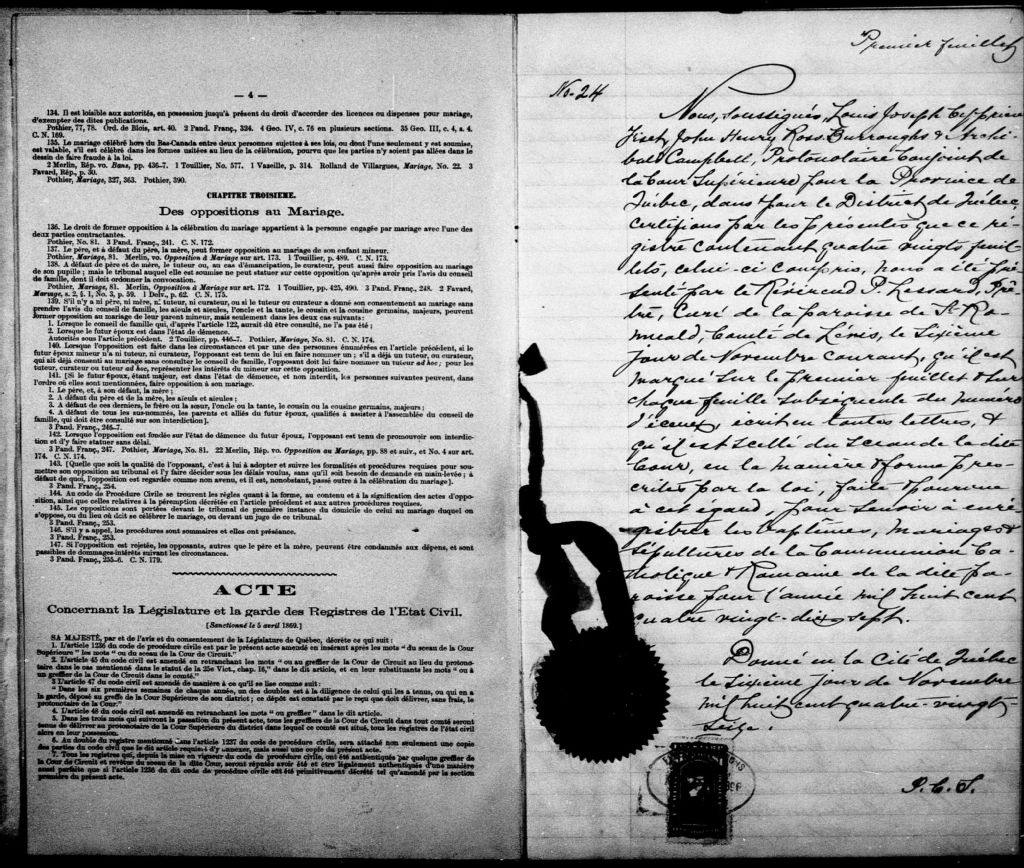 — 4 —
134. Il est loisible aux autorités, en possession jusqu'à présent du droit d'accorder des licences ou dispenses pour mariage,
d'exempter des dites publications.
Pothier, 77, 78. Ord. de Blois, art. 40. 2 Pand. Franç., 324. 4 Geo. IV, c. 76 en plusieurs sections. 35 Geo. III, c. 4, s. 4.
C. N. 169.
135. Le mariage célébré hors du Bas-Canada entre deux personnes sujettes à ses lois, ou dont l'une seulement y est soumise,
est valable, s'il est célébré dans les formes usitées au lieu de la célébration, pourvu que les parties n'y soient pas allées dans le
dessin de faire fraude à la loi.
2 Merlin, Rép. vo. Bans, pp. 436-7. 1 Touillier, No. 577. 1 Vazeille, p. 314. Rolland de Villargues, Mariage, No. 22. 3
Favard, Rép., p. 30.
Pothier, Mariage, 327, 363. Pothier, 390.
CHAPITRE TROISIEME.
Des oppositions au Mariage.
136. Le droit de former opposition à la célébration du mariage appartient à la personne engagée par mariage avec l'une des
deux parties contractantes.
Pothier, No. 81. 3 Pand. Franç., 241. C. N. 172.
137. Le père, et à défaut du père, la mère, peut former opposition au mariage de son enfant mineur.
Pothier, Mariage, 81. Merlin, vo. Opposition à Mariage sur art. 173. 1 Touillier, p. 489. C. N. 173.
138. A défaut de père et de mère, le tuteur ou, au cas d'émancipation, le curateur, peut aussi faire opposition au mariage
de son pupille; mais le tribunal auquel elle est soumise ne peut statuer sur cette opposition qu'après avoir pris l'avis du conseil
de famille, dont il doit ordonner la convocation.
Pothier, Mariage, 81. Merlin, Opposition à Mariage sur art. 172. 1 Touillier, pp. 425, 490. 3 Pand. Franç., 248. 2 Favard,
Mariage, s. 2, § 1, No. 3, p. 59. 1 Delv., p. 62. C. N. 175.
139. S'il n'y a ni père, ni mère, ni tuteur, ni curateur, ou si le tuteur ou curateur a donné son consentement au mariage sans
prendre l'avis du conseil de famille, les aieuls et aieules, l'oncle et la tante, le cousin et la cousine germains, majeurs, peuvent
former opposition au mariage de leur parent mineur, mais seulement dans les deux cas suivants:
1. Lorsque le conseil de famille qui, d'après l'article 122, aurait dû être consulté, ne l'a pas été;
2. Lorsque le futur époux est dans l'état de démence.
Autorités sous l'article précédent. 2 Touillier, pp. 446-7. Pothier, Mariage, No. 81. C. N. 174.
140. Lorsque l'opposition est faite dans les circonstances et par une des personnes énumérées en l'article précédent, si le
futur époux mineur n'a ni tuteur, ni curateur, l'opposant est tenu de lui en faire nommer un; s'il a déjà un tuteur, ou curateur,
qui ait déjà consenti au mariage sans consulter le conseil de famille, l'opposant doit lui faire nommer un tuteur ad hoc; pour les
tuteur, curateur ou tuteur ad hoc, représenter les intérêts du mineur sur cette opposition.
141. [Si le futur époux, étant majeur, est dans l'état de démence, et non interdit, les personnes suivantes peuvent, dans
l'ordre où elles sont mentionnées, faire opposition à son mariage.
1. Le père, et, à son défaut, la mère;
2. A défaut du père et de la mère, les aieuls et aieules;
3. A défaut de ces derniers, le frère ou la sœur, l'oncle ou la tante, le cousin ou la cousine germains, majeurs;
4. A défaut de tous les sus-nommés, les parents et alliés du futur époux, qualifiés à assister à l'assemblée du conseil de
famille, qui doit être consulté sur son interdiction].
3 Pand. Franç., 246-7.
142. Lorsque l'opposition est fondée sur l'état de démence du futur époux, l'opposant est tenu de promouvoir son interdic-
tion et d'y faire statuer sans délai.
3 Pand. Franç., 247. Pothier, Mariage, No. 81. 22 Merlin, Rép. vo. Opposition au Mariage, pp. 88 et suiv., et No. 4 sur art.
174. C. N. 174.
143. [Quelque soit la qualité de l'opposant, c'est à lui à adopter et suivre les formalités et procédures requises pour sou-
mettre son opposition au tribunal et l'y faire décider sous les délais voulus, sans qu'il soit besoin de demande en main-levée; à
défaut de quoi, l'opposition est regardée comme non avenue, et il est, nonobstant, passé outre à la célébration du mariage].
3 Pand. Franç., 254.
144. Au code de Procédure Civile se trouvent les règles quant à la forme, au contenu et à la signification des actes d'oppo-
sition, ainsi que celles relatives à la péremption décrétée en l'article précédent et aux autres procédures requises.
145. Les oppositions sont portées devant le tribunal de première instance du domicile de celui au mariage duquel on
s'oppose, ou du lieu où doit se célébrer le mariage, ou devant un juge de ce tribunal.
3 Pand. Franç., 253.
146. S'il y a appel, les procédures sont sommaires et elles ont préséance.
3 Pand. Franç., 253.
147. Si l'opposition est rejetée, les opposants, autres que le père et la mère, peuvent être condamnés aux dépens, et sont
passibles de dommages-intérêts suivant les circonstances.
3 Pand. Franç., 255-6. C. N. 179.
ACTE
Concernant la Législature et la garde des Registres de l'Etat Civil.
[Sanctionné le 5 avril 1869.]
SA MAJESTÉ, par et de l'avis et du consentement de la Législature de Québec, décrète ce qui suit:
1. L'article 1236 du code de procédure civile est par le présent acte amendé en insérant après les mots "du sceau de la Cour
Supérieure" les mots "ou du sceau de la Cour de Circuit."
2. L'article 45 du code civil est amendé en retranchant les mots "ou au greffier de la Cour de Circuit au lieu du protono-
taire dans le cas mentionné dans le statut de la 25e Vict., chap. 16," dans le dit article, et en leur substituant les mots "ou à
un greffier de la Cour de Circuit dans le comté."
3 L'article 47 du code civil est amendé de manière à ce qu'il se lise comme suit:
"Dans les six premières semaines de chaque année, un des doubles est à la diligence de celui qui les a tenus, ou qui en a
la garde, déposé au greffe de la Cour Supérieure de son district; ce dépôt est constaté par le reçu que doit délivrer, sans frais, le
protonotaire de la Cour."
4. L'article 48 du code civil est amendé en retranchant les mots "ou greffier" dans le dit article.
5. Dans les trois mois qui suivront la passation du présent acte, tous les greffiers de la Cour de Circuit dans tout comté seront
tenus de délivrer au protonotaire de la Cour Supérieure du district dans lequel ce comté est situé, tous les registres de l'état civil
alors en leur possession.
6. Au double du registre mentionné dans l'article 1237 du code de procédure civile, sera attaché non seulement une copie
des parties du code civil que le dit article requiert d'y annexer, mais aussi une copie du présent acte.
7. Tous les registres qui, depuis la mise en vigueur du code de procédure civile, ont été authentiqués par quelque greffier de
la Cour de Circuit et revêtus du sceau de la dite Cour, seront réputés avoir été et être légalement authentiqués d'une manière
aussi parfaite que si l'article 1236 du dit code de procédure civile eût été primitivement décrété tel qu'amendé par la section
première du présent acte.
Premier feuillet
No-24
Nous, soussignés, Louis Joseph Cyprien
Fiset, John Henry Ross Burroughs & Archi-
bald Campbell, Protonotaire Conjoint de
la Cour Supérieure pour la Province de
Québec, dans & pour le District de Québec,
certifions par les présentes que ce ré-
gistre contenant quatre vingts feuil-
lets, celui-ci compris, nous a été pré-
senté par le Révérend P. Lessard, Prê-
tre, Curé de la paroisse de St Ro-
muald, Comté de Lévis, le sixième
jour de Novembre Courant, qu'il est
marqué sur le premier feuillet & sur
chaque feuille subséquente du numéro
d'icelui, écrit en toutes lettres, &
qu'il est scellé du Sceau de la dite
Cour, en la manière & forme pres-
crites par la loi, faite & pourvue
à cet égard, pour servir à enré-
gistrer les baptêmes, mariages &
sépultures de la Communion Ca-
tholique & Romaine de la dite pa-
roisse pour l'année mil huit cent
quatre vingt-dix sept.
Donné en la Cité de Québec
le sixième jour de Novembre
mil huit cent quatre-vingt-
seize.
P. C. S.